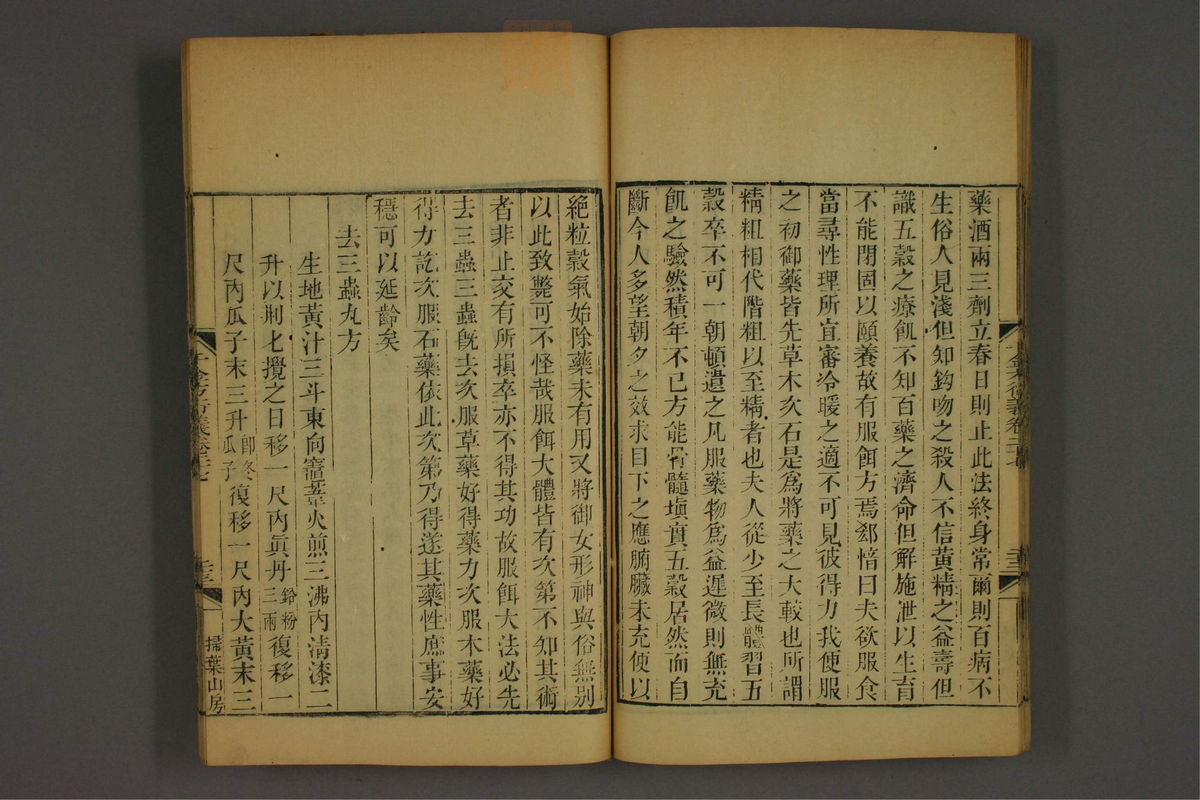 藥酒兩三劑立春日則止此法終身常爾則百病不
生俗人見淺但知鈎吻之殺人不信黃精之益壽但
識五穀之療飢不知百藥之濟命但解施泄以生育
不能閉固以頤養故有服餌方焉郄愔曰夫欲服食
當尋性理所宜審冷暖之適不可見彼得力我便服
之初御藥皆先草木次石是爲將藥之大較也所謂
精粗相代階粗以至精者也夫人從少至長體習五
穀卒不可一朝頓遺之凡服藥物爲益遲微則無充
飢之驗然積年不已方能骨髓塡實五穀居然而自
斷今人多望朝夕之效求目下之應腑臟未充便以
絶粒穀氣始除藥未有用又將御女形神與俗無别
以此致斃可不怪哉服餌大體皆有次第不知其術
者非止交有所損卒亦不得其功故服餌大法必先
去三蟲三蟲旣去次服草藥好得藥力次服木藥好
得力訖次服石藥依此次第乃得遂其藥性庶事安
穩可以延齡矣
去三蟲丸方
生地黃汁三斗東向竈葦火煎三沸內淸漆二
升以荆匕攪之日移一尺內眞丹三兩鉛粉復移一
尺內瓜子末三升瓜子卽冬復移一尺內大黃末三
千金方衍義卷二十七
掃葉山房